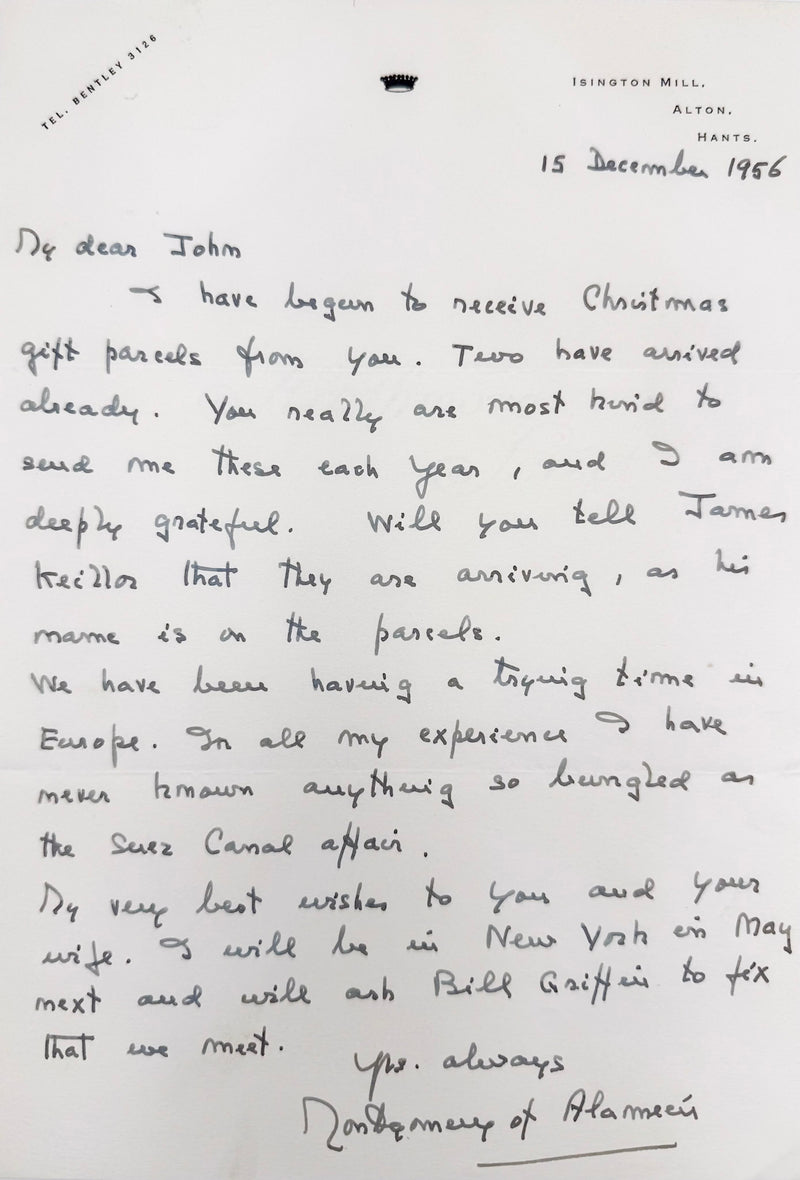 TEL. BENTLEY 3126
ISINGTON MILL,
ALTON,
HANTS.
15 December 1956
My dear John
I have begun to receive Christmas
gift parcels from you. Two have arrived
already. You really are most kind to
send me these each year, and I am
deeply grateful. Will you tell James
Keillor that they are arriving, as his
name is on the parcels.
We have been having a trying time in
Europe. In all my experience I have
never known anything so bungled as
the Suez Canal affair.
My very best wishes to you and your
wife. I will be in New York in May
next and will ask Bill Griffin to fix
that we meet.
Yrs. always
Montgomery of Alamein